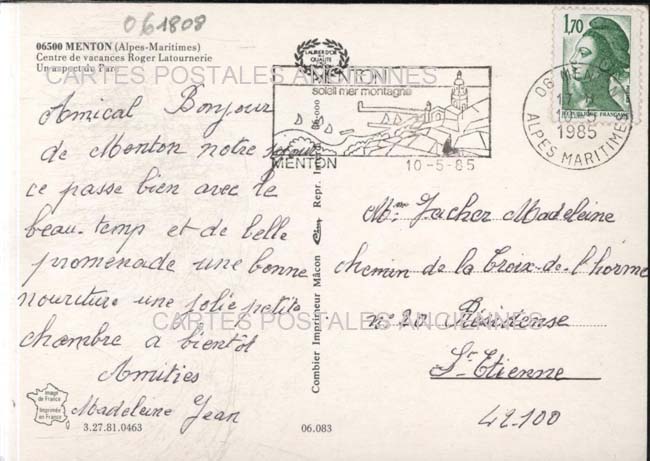 061808
06500 MENTON (Alpes-Maritimes)
Centre de vacances Roger Latournerie
Un aspect du Parc
CARTES POSTALES ANCIENNES
Amical Bonjour
de Menton notre séjour
ce passe bien avec le
beau-temp et de belle
promenade une bonne
nouriture une jolie petite
chambre a bientôt
Amitiés
Madeleine Jean
Image de France
Imprimée en France
3.27.81.0463
06.083
Combier Imprimeur Mâcon Cim Repr. 06-000
LAURIER D'OR
DE
QUALITÉ
MENTON
soleil mer montagne
MENTON 10-5-85
1,70
REPUBLIQUE FRANÇAISE
06 MENTON
1985
ALPES MARITIMES
Mme Jacher Madeleine
chemin de la Croix-de-l'horme
n° 20 Résidense
CARTES POSTALES ANCIENNES
St-Etienne
42-100